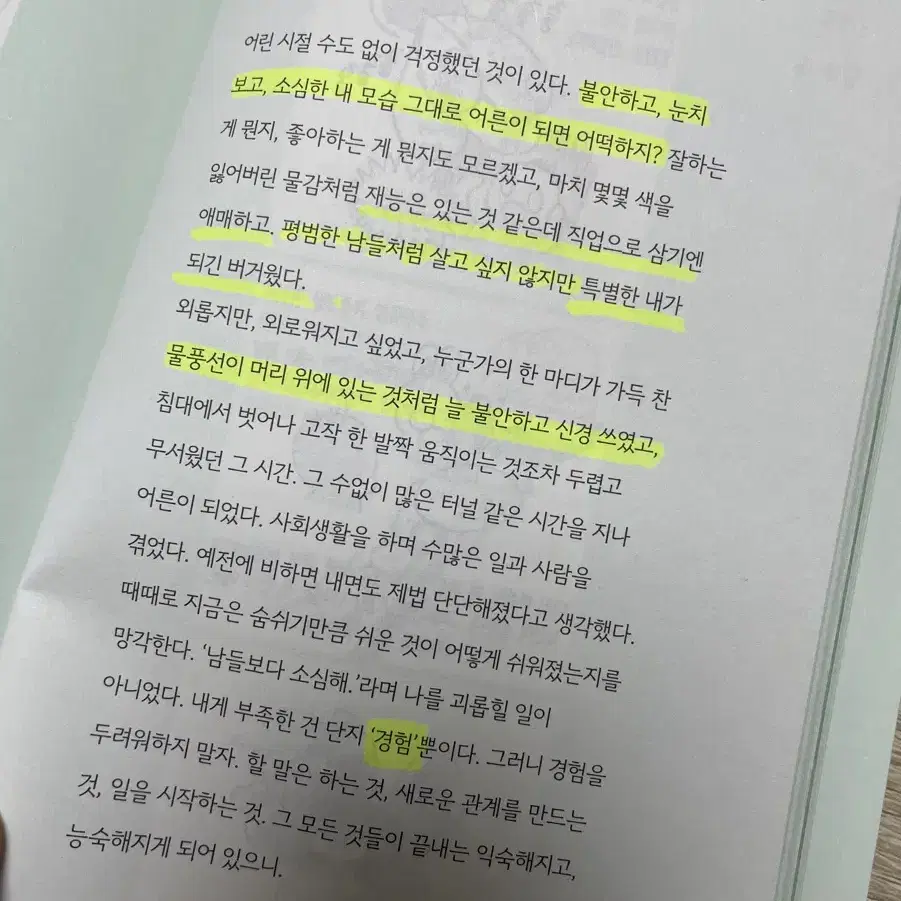 어린 시절 수도 없이 걱정했던 것이 있다. 불안하고, 눈치
보고, 소심한 내 모습 그대로 어른이 되면 어떡하지? 잘하는
게 뭔지, 좋아하는 게 뭔지도 모르겠고, 마치 몇몇 색을
잃어버린 물감처럼 재능은 있는 것 같은데 직업으로 삼기엔
애매하고. 평범한 남들처럼 살고 싶지 않지만 특별한 내가
되긴 버거웠다.
외롭지만, 외로워지고 싶었고, 누군가의 한 마디가 가득 찬
물풍선이 머리 위에 있는 것처럼 늘 불안하고 신경 쓰였고,
침대에서 벗어나 고작 한 발짝 움직이는 것조차 두렵고
무서웠던 그 시간. 그 수없이 많은 터널 같은 시간을 지나
어른이 되었다. 사회생활을 하며 수많은 일과 사람을
겪었다. 예전에 비하면 내면도 제법 단단해졌다고 생각했다.
때때로 지금은 숨쉬기만큼 쉬운 것이 어떻게 쉬워졌는지를
망각한다. ‘남들보다 소심해.’라며 나를 괴롭힐 일이
아니었다. 내게 부족한 건 단지 ‘경험’뿐이다. 그러니 경험을
두려워하지 말자. 할 말은 하는 것, 새로운 관계를 만드는
것, 일을 시작하는 것. 그 모든 것들이 끝내는 익숙해지고,
능숙해지게 되어 있으니.